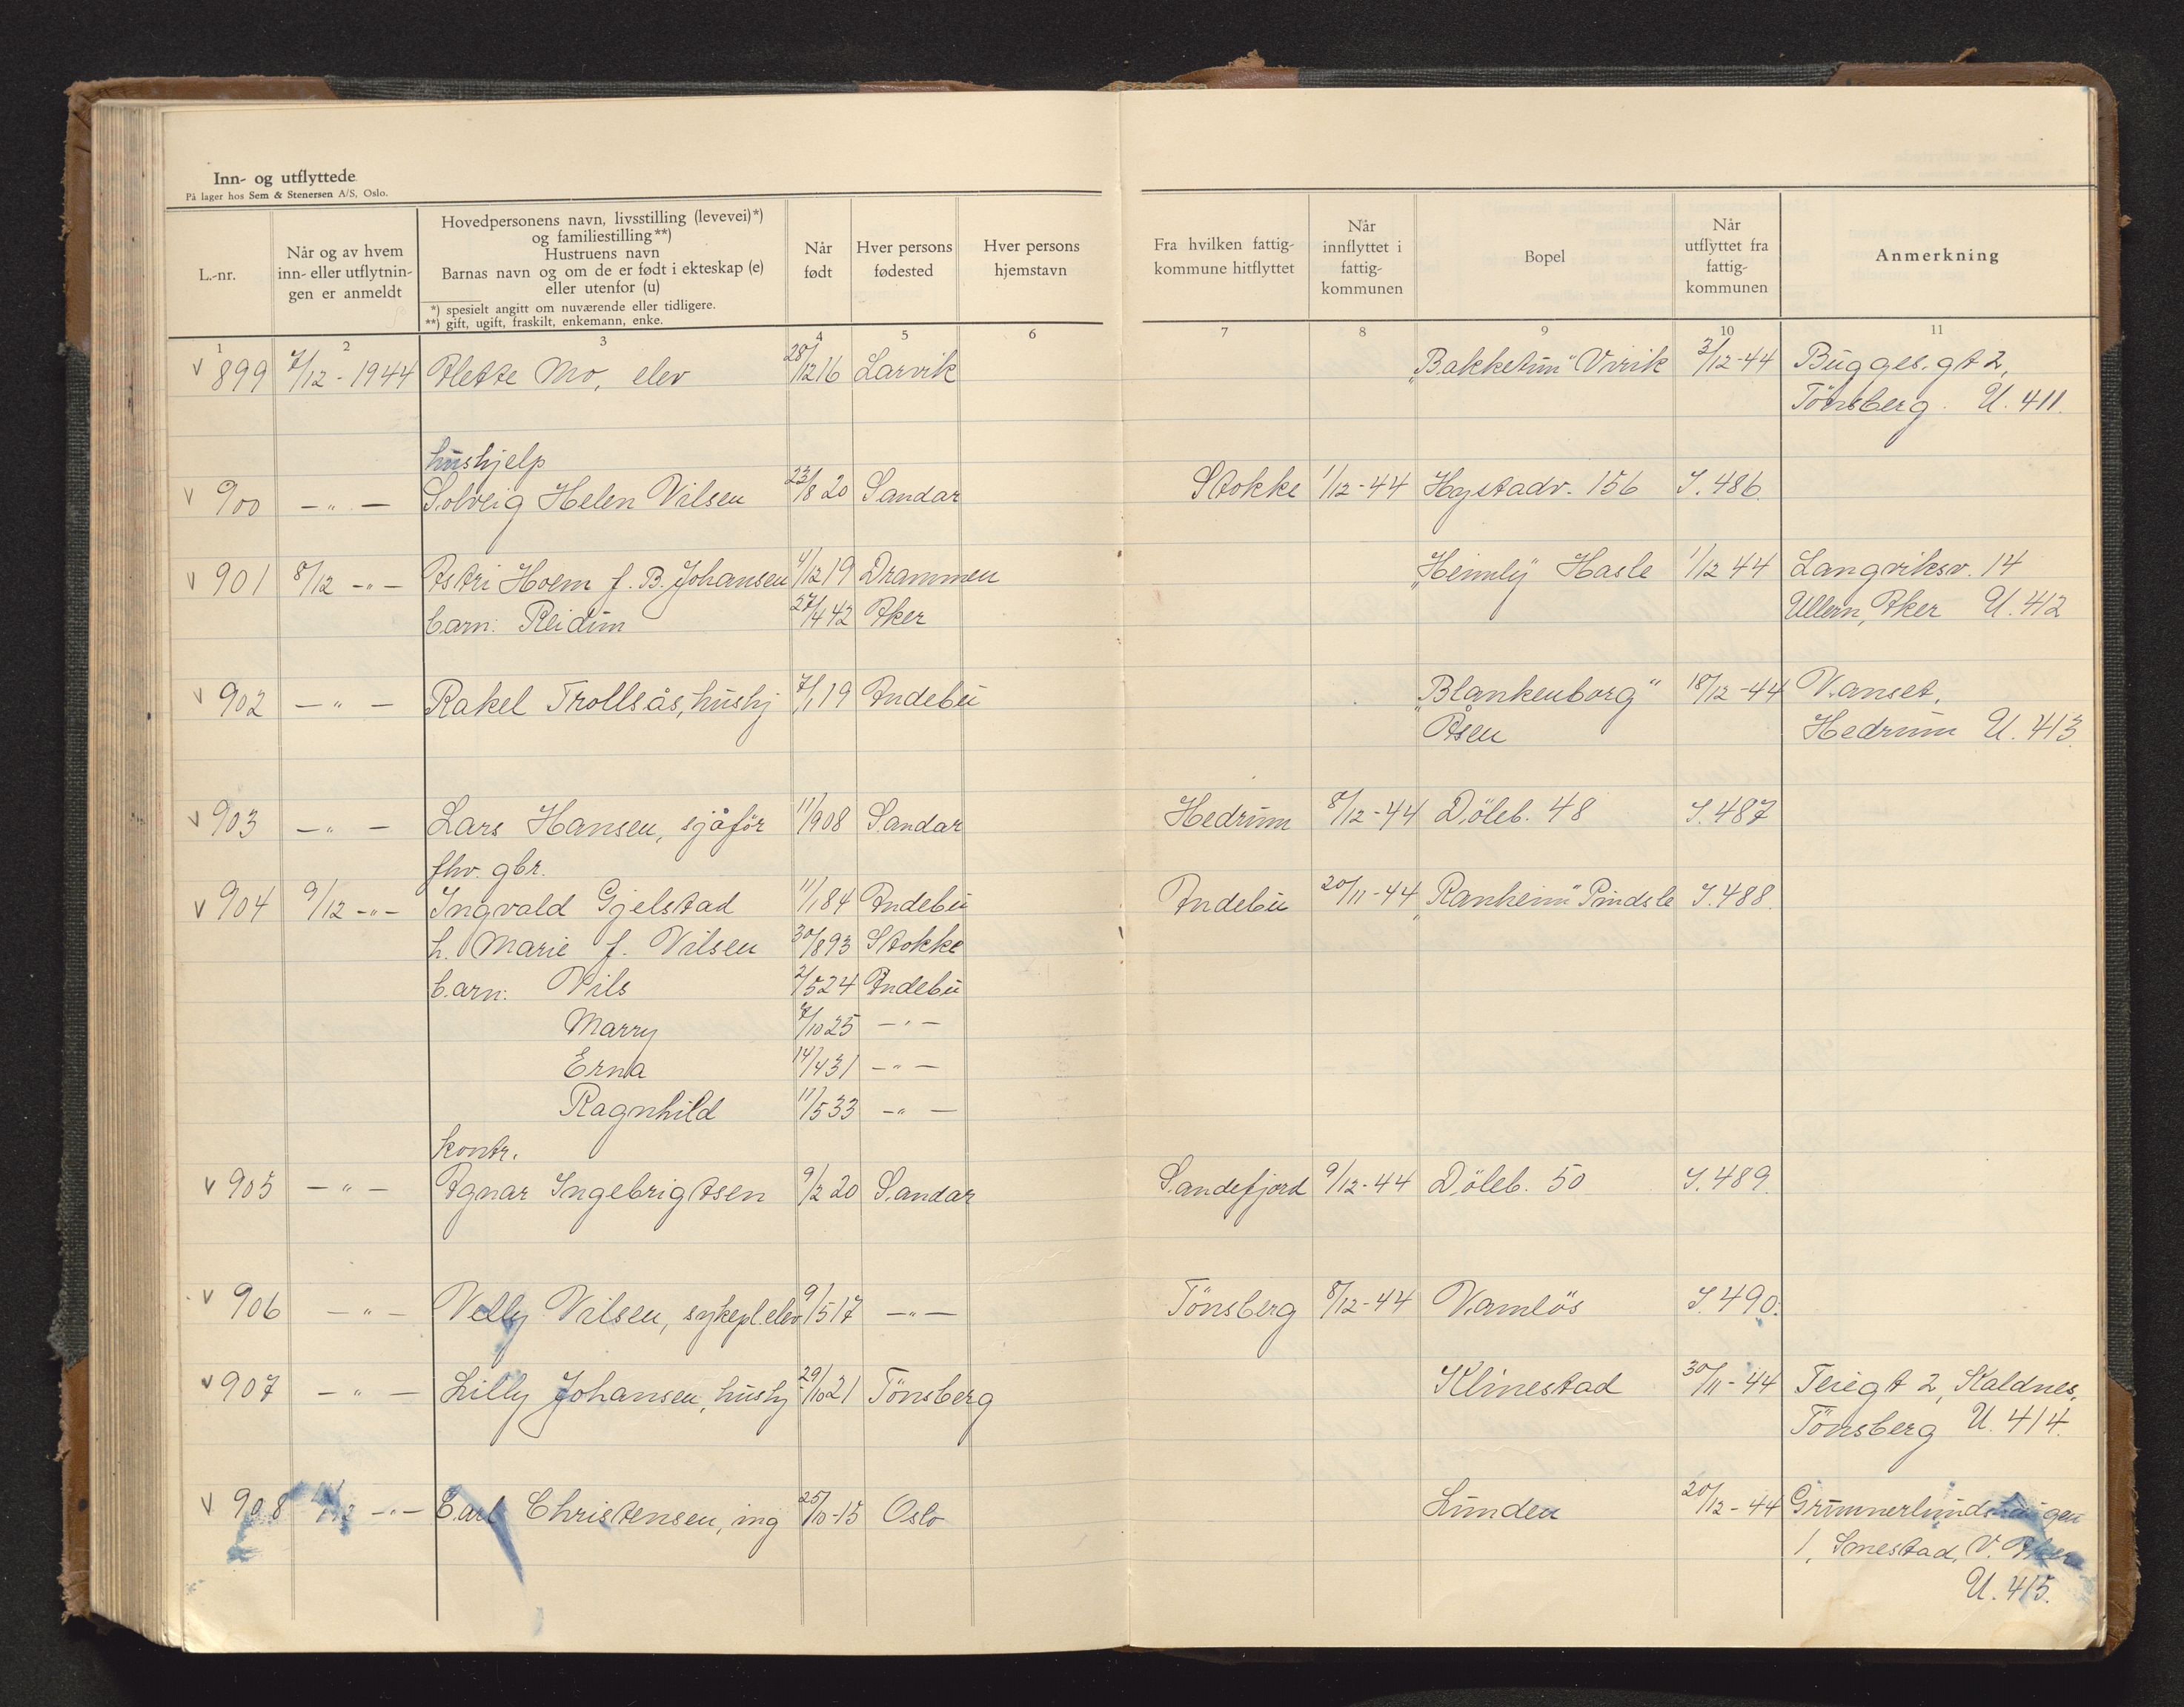 Inn- og utflyttede
På lager hos Sem & Stenersen A/S, Oslo.
L.-nr.
Når og av hvem
inn- eller utflytnin-
gen er anmeldt
Hovedpersonens navn, livsstilling (levevei)*)
og familiestilling**)
Hustruens navn
Barnas navn og om de er født i ekteskap (e)
eller utenfor (u)
*) spesielt angitt om nuværende eller tidligere.
**) gift, ugift, fraskilt, enkemann, enke.
Når
født
Hver persons
fødested
Hver persons
hjemstavn
Fra hvilken fattig-
kommune hitflyttet
Når
innflyttet i
fattig-
kommunen
Bopel
Når
utflyttet fra
fattig-
kommunen
Anmerkning
1 2 3 4 5 6 7 8 9 10 11
v 899 7/12 - 1944 Aletте Mo, elev 28/12 16 Larvik „Bakketun" Virik 3/12-44 Bugges. gt 2,
Tönsberg. U. 411.
hushjelp
v 900 -"- Solveig Helen Nilsen 23/8 20 Sandar Stokke 1/12-44 Hystadv. 156 I. 486.
v 901 8/12 -"- Astri Hoem f. B. Johansen 4/12 19 Drammen „Heimly" Hasle 1/12 44 Langviksv. 14
barn: Reidun 27/4 42 Aker Ullern, Aker U. 412
v 902 -"- Rakel Trollsås, hushj 7/1 19 Andebu „Blankenborg" 18/12-44 Nanset,
Åsen Hedrum U. 413.
v 903 -"- Lars Hansen, sjåför 11/9 08 Sandar Hedrum 8/12-44 Döleb. 48 I. 487
fhv. gbr.
v 904 9/12 -"- Ingvald Gjelstad 11/1 84 Andebu Andebu 20/11-44 „Ranheim" Pindsle I. 488.
h. Marie f. Nilsen 30/8 93 Stokke
barn: Nils 2/5 24 Andebu
Marry 7/10 25 -"-
Erna 14/4 31 -"-
Ragnhild 11/5 33 -"-
kontr.
v 905 -"- Agnar Ingebrigtsen 9/2 20 Sandar Sandefjord 9/12-44 Döleb. 50 I. 489.
v 906 -"- Nelly Nilsen, sykepl.elev 9/5 17 -"- Tönsberg 8/12-44 Namlös I. 490.
v 907 -"- Lilly Johansen, hushj 29/10 21 Tönsberg Klinestad 30/11-44 Teiegt 2, Kaldnes,
Tönsberg U. 414.
v 908 -"- Carl Christensen, ing 25/10-15 Oslo Lunden 20/12-44
1, Smestad, V. Aker
U. 415.